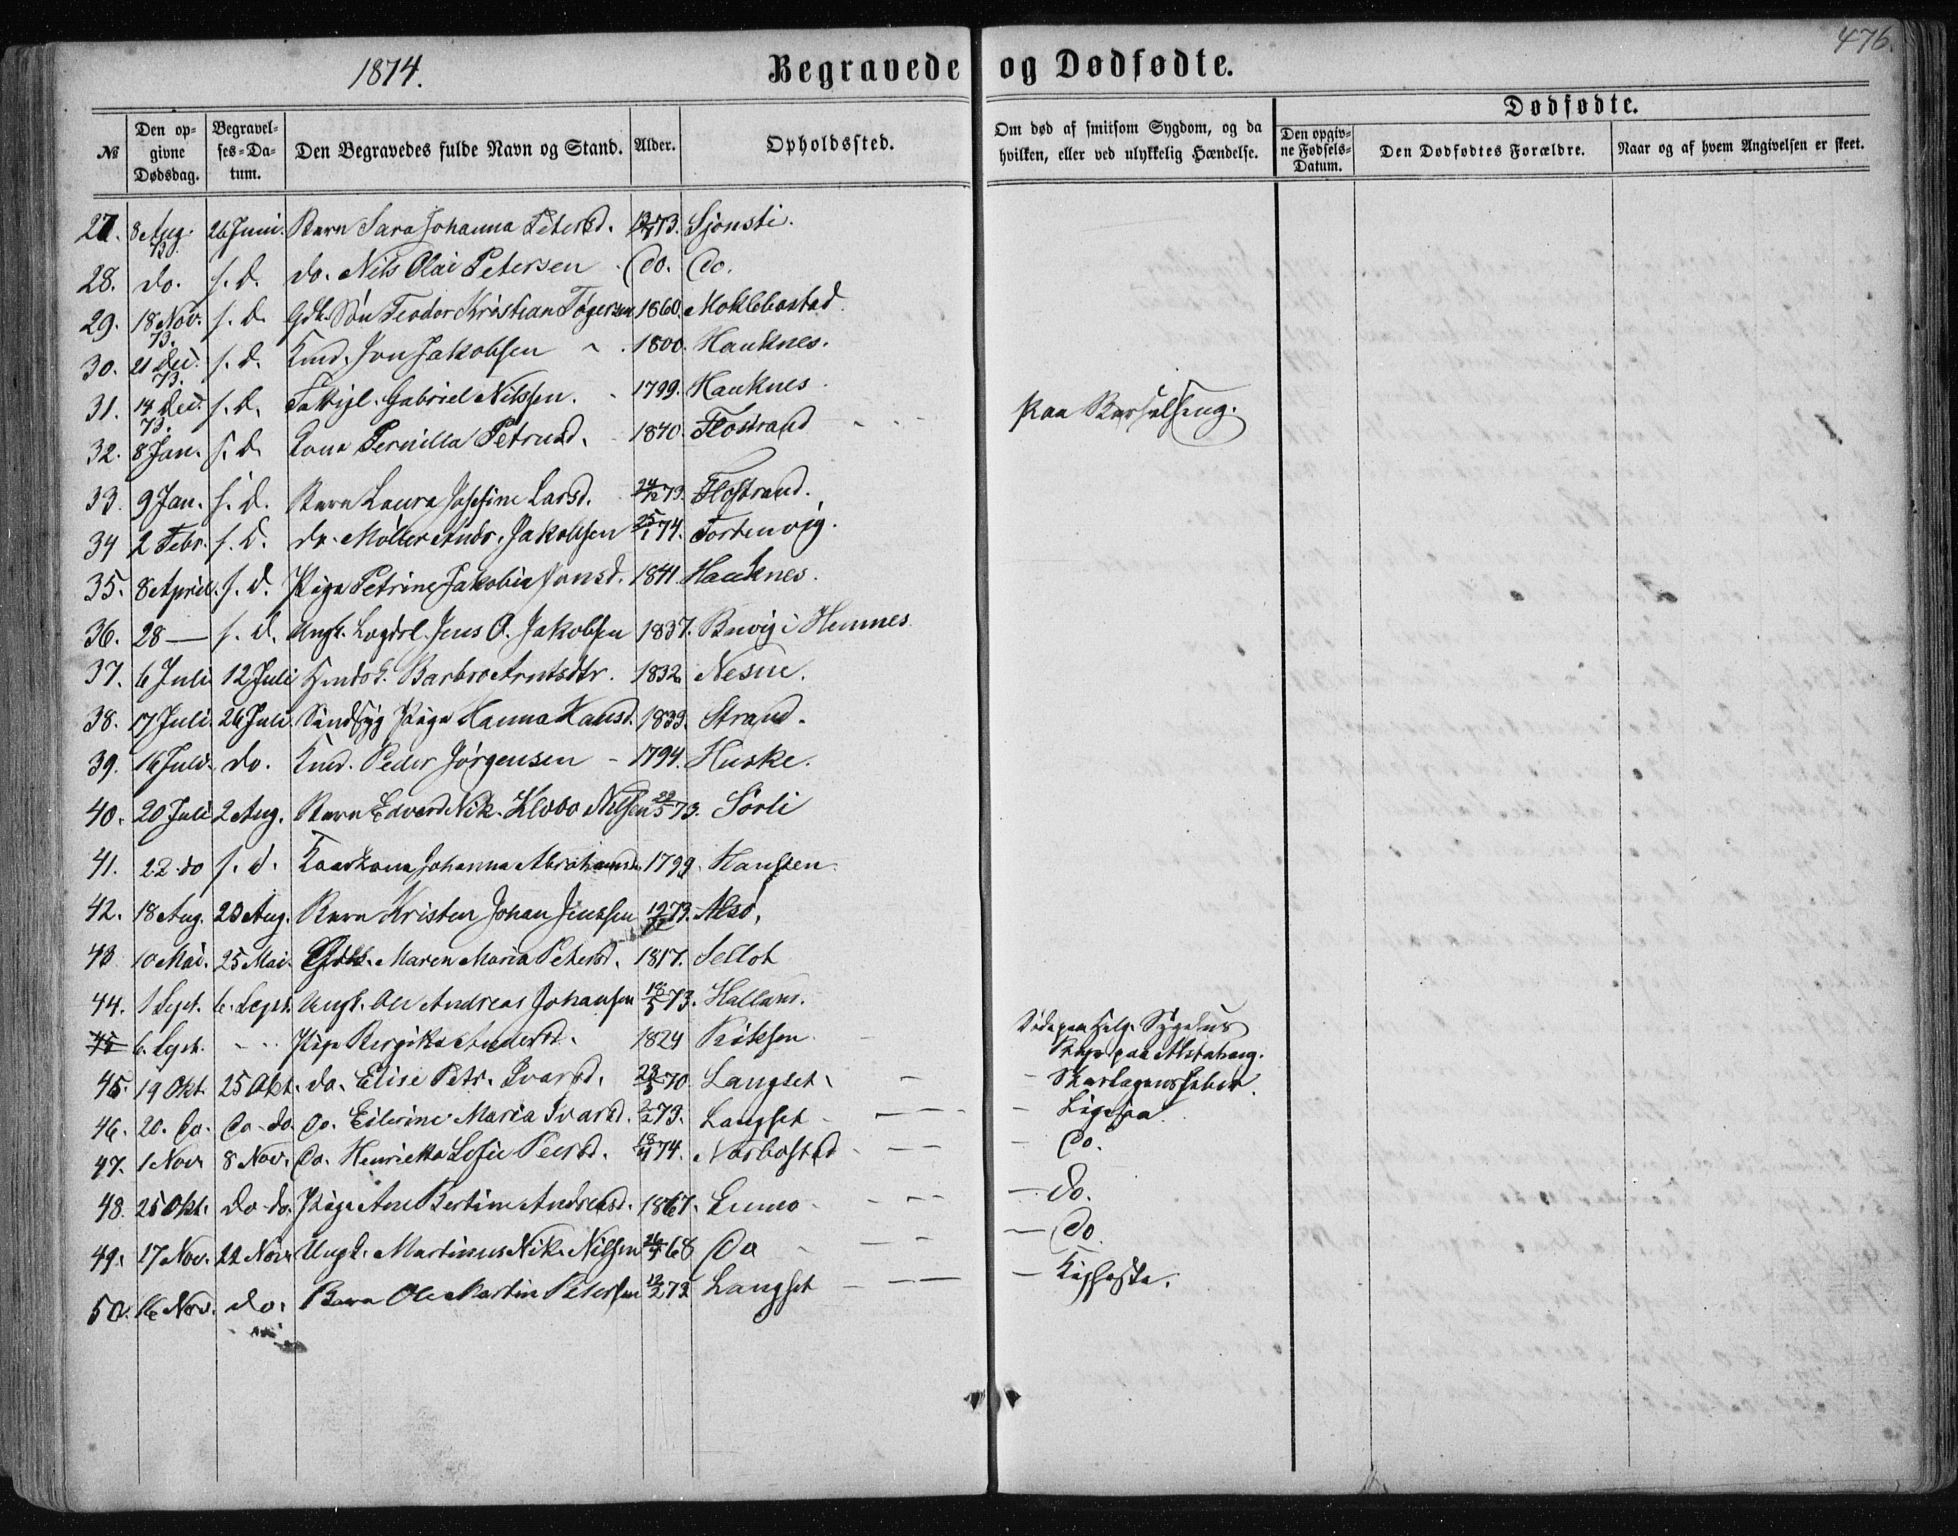 1874.
Begravede og Dødfødte.
476.
Dødfødte.
№
Den opgivne Dødsdag.
Begravelses-Datum.
Den Begravedes fulde Navn og Stand.
Alder.
Opholdssted.
Om død af smitsom Sygdom, og da hvilken, eller ved ulykkelig Hændelse.
Den opgivne Fødsels-Datum.
Den Dødfødtes Forældre.
Naar og af hvem Angivelsen er skeet.
27. 8 Aug. 73. 26 Juni. Barn Sara Johanna Petersd. 73. Sjonsti.
28. do. s. d. do. Nils Olai Petersen do. do.
29. 18 Nov. 73. s. d. Gdk. Søn Teodor Kristian Tøgersen 1860.
30. 21 Dec. 73. s. d. Kmd. Jon Jakobsen 1800. Hauknes.
31. 14 Dec. 73. s. d. Gabriel Nilssen. 1799. Hauknes.
32. 8 Jan. s. d. Kona Pernilla Petersd. 1840. Flostrand Paa Barselseng.
33. 9 Jan. s. d. Barn Laura Josefine Larsd. 24/12 73. Flostrand.
34 2 Febr. s. d. do. Møller Andr. Jakobsen 25/1 74.
35. 8 April. s. d. Pige Petrine Jakobia Jonsd. 1841. Hauknes.
36. 28 — s. d. Ungk. Jens O. Jakobsen 1837. i Hemnes
37. 6 Juli 12 Juli Barbro Arntsdtr. 1832. Nesne.
38. 17 Juli. 26 Juli. Sindsyg Pige Hanna Hansd. 1833. Strand.
39. 16 Juli. do. Kmd. Peder Jørgensen - 1794. Huske.
40. 20 Juli 2 Aug. Barn Edvard Nik. Klovo Nilsen 29/5 73. Sørli
41. 22 do s. d. Kaarkona Johanna Abrahamsd. 1799.
42. 18 Aug. 23 Aug. Barn Kristen Johan Jenssen 73. Alsø.
43 10 Mai. 25 Mai. Maren Maria Petersd. 1817. Sellot
44. 1 Sept. 6. Sept. Ungk. Ole Andreas Johansen 18/5 73.
45 6. Sept. - - Pige Andersd. 1824 Sygehus paa Alstahaug.
45. 19 Okt. 25 Okt. do. Elise Petr. Ivarsd. 23/5 70. Langset. — - Skarlagensfeber.
46. 20. do. do - do do. Eilerine Maria Ivarsd. 73. Langset - — - Ligesaa
47. 1 Nov. 8 Nov. do. Henrietta Lofie Peersd. 18/4 74. - — - do.
48. 25 Okt. do - do. Pige Ane Bertine Andreasd. 1867. - — - — do.
49. 17 Nov. 22 Nov. Ungk. Martinus Nik. Nilsen 68 do - — - — do.
50. 16 Nov. do. Barn Ole Martin Petersen 12/2 73 Langset - — - Kighoste.